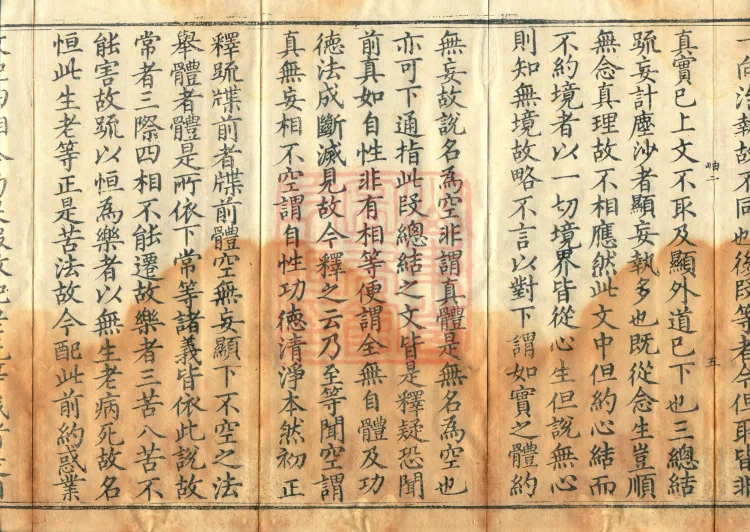 一向治執故不同也後段等者今但取皆非
真實已上文不取及顯外道已下也三總結
疏妄計塵沙者顯妄執多也既從念生豈順
無念真理故不相應然此文中但約心結而
不約境者以一切境界皆從心生但說無心
則知無境故略不言以對下謂如實之體約
無妄故說名為空非謂真體是無名為空也
亦可下通指此段總結之文皆是釋疑恐聞
前真如自性非有相等便謂全無自體及功
德法成斷滅見故今釋之云乃至等聞空謂
真無妄相不空謂自性功德清淨本然初正
釋疏牒前者牒前體空無妄顯下不空之法
舉體者體是所依下常等諸義皆依此說故
常者三際四相不能遷故樂者三苦八苦不
能害故疏以恒為樂者以無生老病死故名
恒此生老等正是苦法故今配此前約惑業
岫二
五